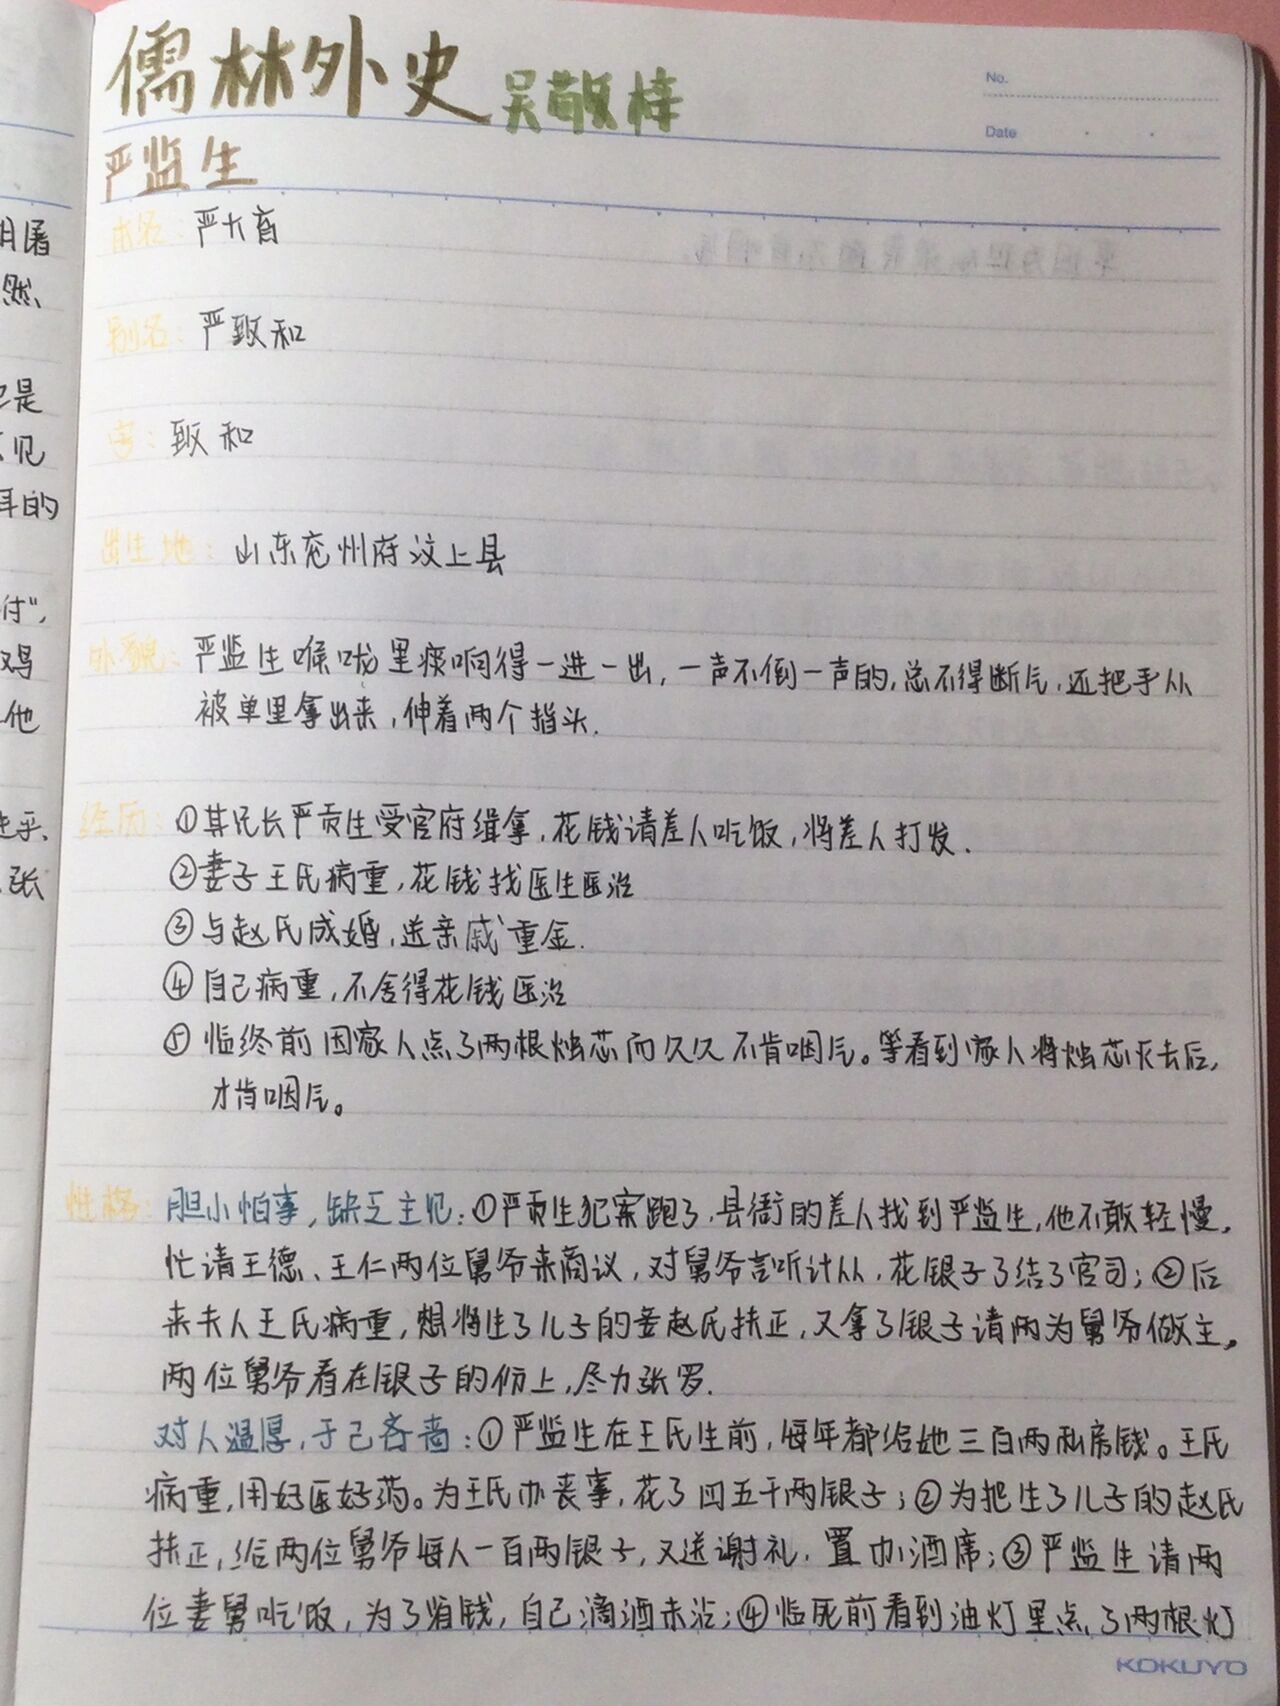 儒林外史 吴敬梓
No.
Date
严监生
本名：严大育
别名：严致和
字：致和
出生地：山东兖州府汶上县
外貌：严监生喉咙里痰响得一进一出，一声不倒一声的，总不得断气，还把手从
被单里拿出来，伸着两个指头.
经历：①其兄长严贡生受官府缉拿，花钱请差人吃饭，将差人打发.
②妻子王氏病重，花钱找医生医治
③与赵氏成婚，送亲戚重金.
④自己病重，不舍得花钱医治
⑤临终前因家人点了两根烛芯而久久不肯咽气。等看到家人将烛芯灭去后，
才肯咽气。
性格：胆小怕事，缺乏主见：①严贡生犯案跑了，县衙的差人找到严监生，他不敢轻慢，
忙请王德、王仁两位舅爷来商议，对舅爷言听计从，花银子了结了官司；②后
来夫人王氏病重，想将生了儿子的妾赵氏扶正，又拿了银子请两为舅爷做主。
两位舅爷看在银子的份上，尽力张罗.
对人温厚，于己吝啬：①严监生在王氏生前，每年都给她三百两私房钱。王氏
病重，用好医好药。为王氏办丧事，花了四五千两银子；②为把生了儿子的赵氏
扶正，给两位舅爷每人一百两银子，又送谢礼，置办酒席；③严监生请两
位妻舅吃饭，为了省钱，自己滴酒未沾；④临死前看到油灯里点了两根灯
KOKUYO
月屠
然、
也是
见
耳的
付"，
鸡
他
张